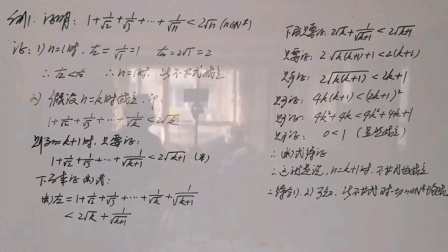 例1. 证明: 1+1/√2+1/√3+⋯+1/√n<2√n (n∈N*)
证: 1) n=1时, 左=1/√1=1 右=2√1=2
∴ 左<右 ∴ n=1时, 不等式成立
2) 假设n=k时成立, 即
1+1/√2+1/√3+⋯+1/√k<2√k
则当n=k+1时, 只要证:
1+1/√2+1/√3+⋯+1/√(k+1)<2√(k+1) (*)
下面来证(*)式:
(*)左=1+1/√2+1/√3+⋯+1/√k+1/√(k+1)
<2√k+1/√(k+1)
下只要证: 2√k+1/√(k+1)<2√(k+1)
只要证: 2√(k(k+1))+1<2(k+1)
只要证: 2√(k(k+1))<2k+1
只要证: 4k(k+1)<(2k+1)²
只要证: 4k²+4k<4k²+4k+1
只要证: 0<1 (显然成立)
∴ (*)式得证
∴ 这就是说, n=k+1时, 不等式成立
∴ 综合1), 2)可知, 该不等式对一切n∈N*都成立